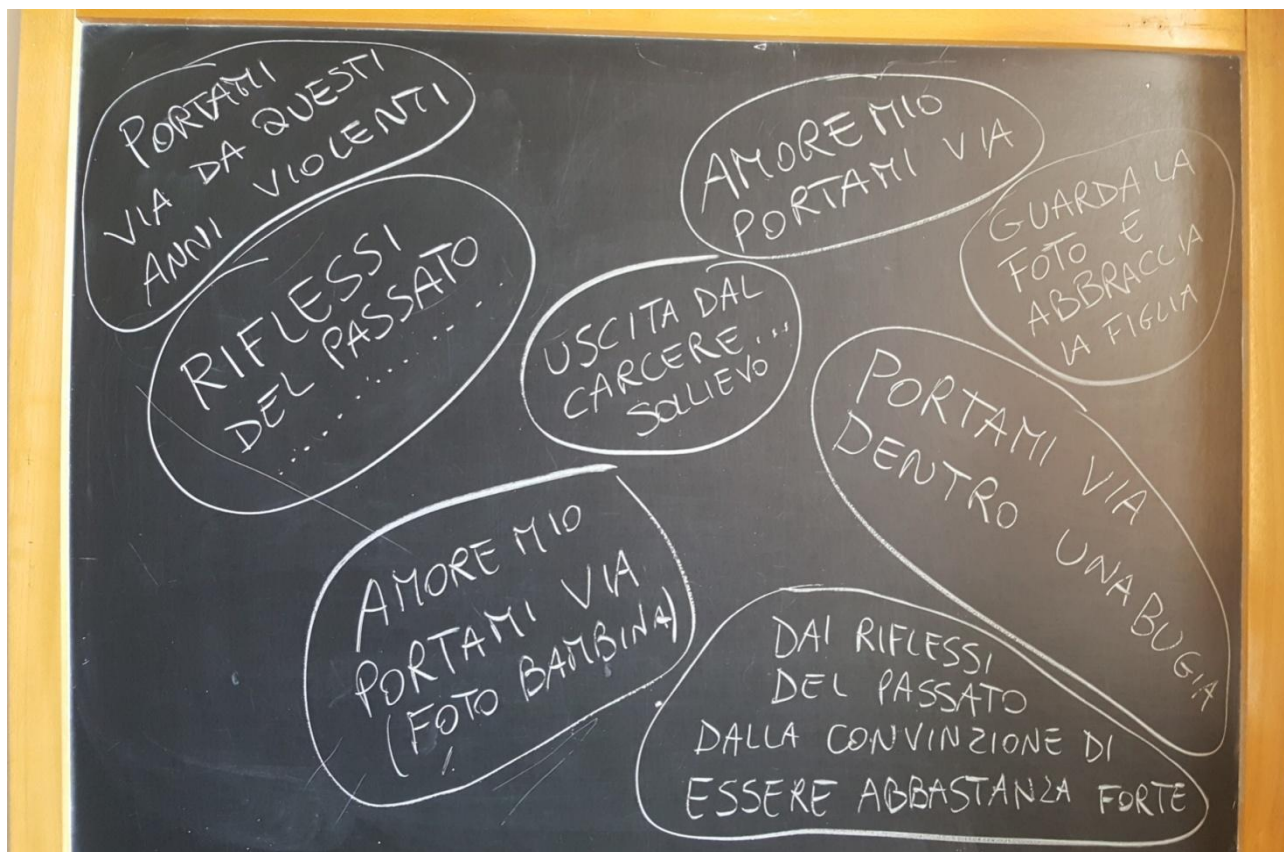 PORTAMI
VIA DA QUESTI
ANNI VIOLENTI
RIFLESSI
DEL PASSATO
..............
AMORE MIO
PORTAMI VIA
GUARDA LA
FOTO E
ABBRACCIA
LA FIGLIA
USCITA DAL
CARCERE...
SOLLIEVO
PORTAMI VIA
DENTRO UNA BUGIA
AMORE MIO
PORTAMI VIA
(FOTO BAMBINA)
DAI RIFLESSI
DEL PASSATO
DALLA CONVINZIONE DI
ESSERE ABBASTANZA FORTE